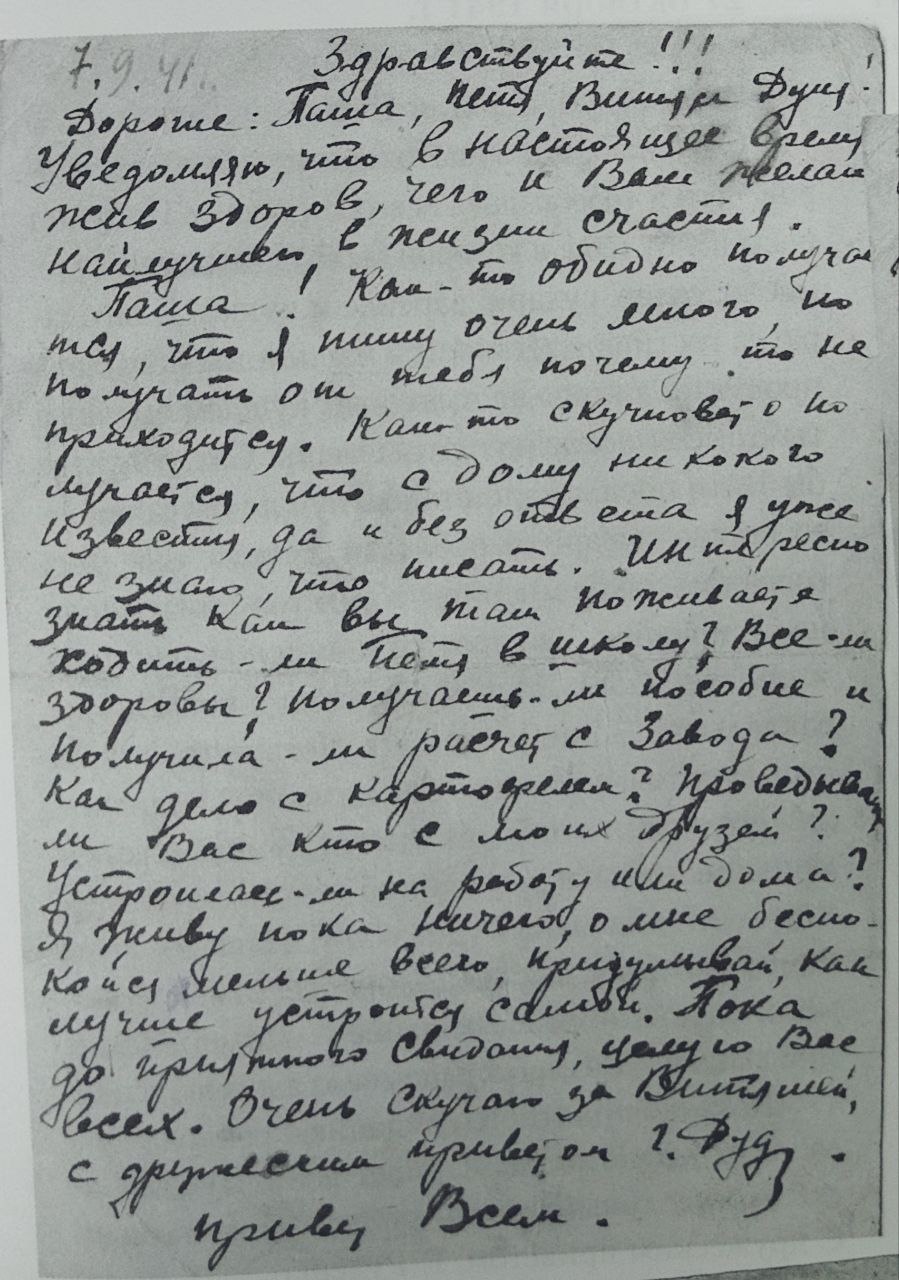 7.9.41.
Здравствуйте!!!
Дорогие: Паша, Петя, Витя и Дуня!
Уведомляю, что в настоящее время
жив здоров, чего и Вам желаю
найлучшего, в жизни счастия.
Паша! Как-то обидно получае
тся, что я пишу очень много, но
получать от тебя почему-то не
приходится. Как-то скучновато по
лучается, что с дому никокого
известия, да и без ответа я уже
не знаю, что писать. Интересно
знать как вы там поживаете
ходить-ли Петя в школу? Все-ли
здоровы? Получаешь-ли пособие и
получила-ли расчет с Завода?
Как дело с картофелем? Проведывает
ли Вас кто с моих друзей?
Устроилась-ли на работу или дома?
Я живу пока ничего, о мне беспо-
койся меньше всего, придумывай, как
лучше устроится самой. Пока
до приятного свидания, целую Вас
всех. Очень скучаю за Витяшей,
с дружеским приветом Г. Дуд
привет Всем.